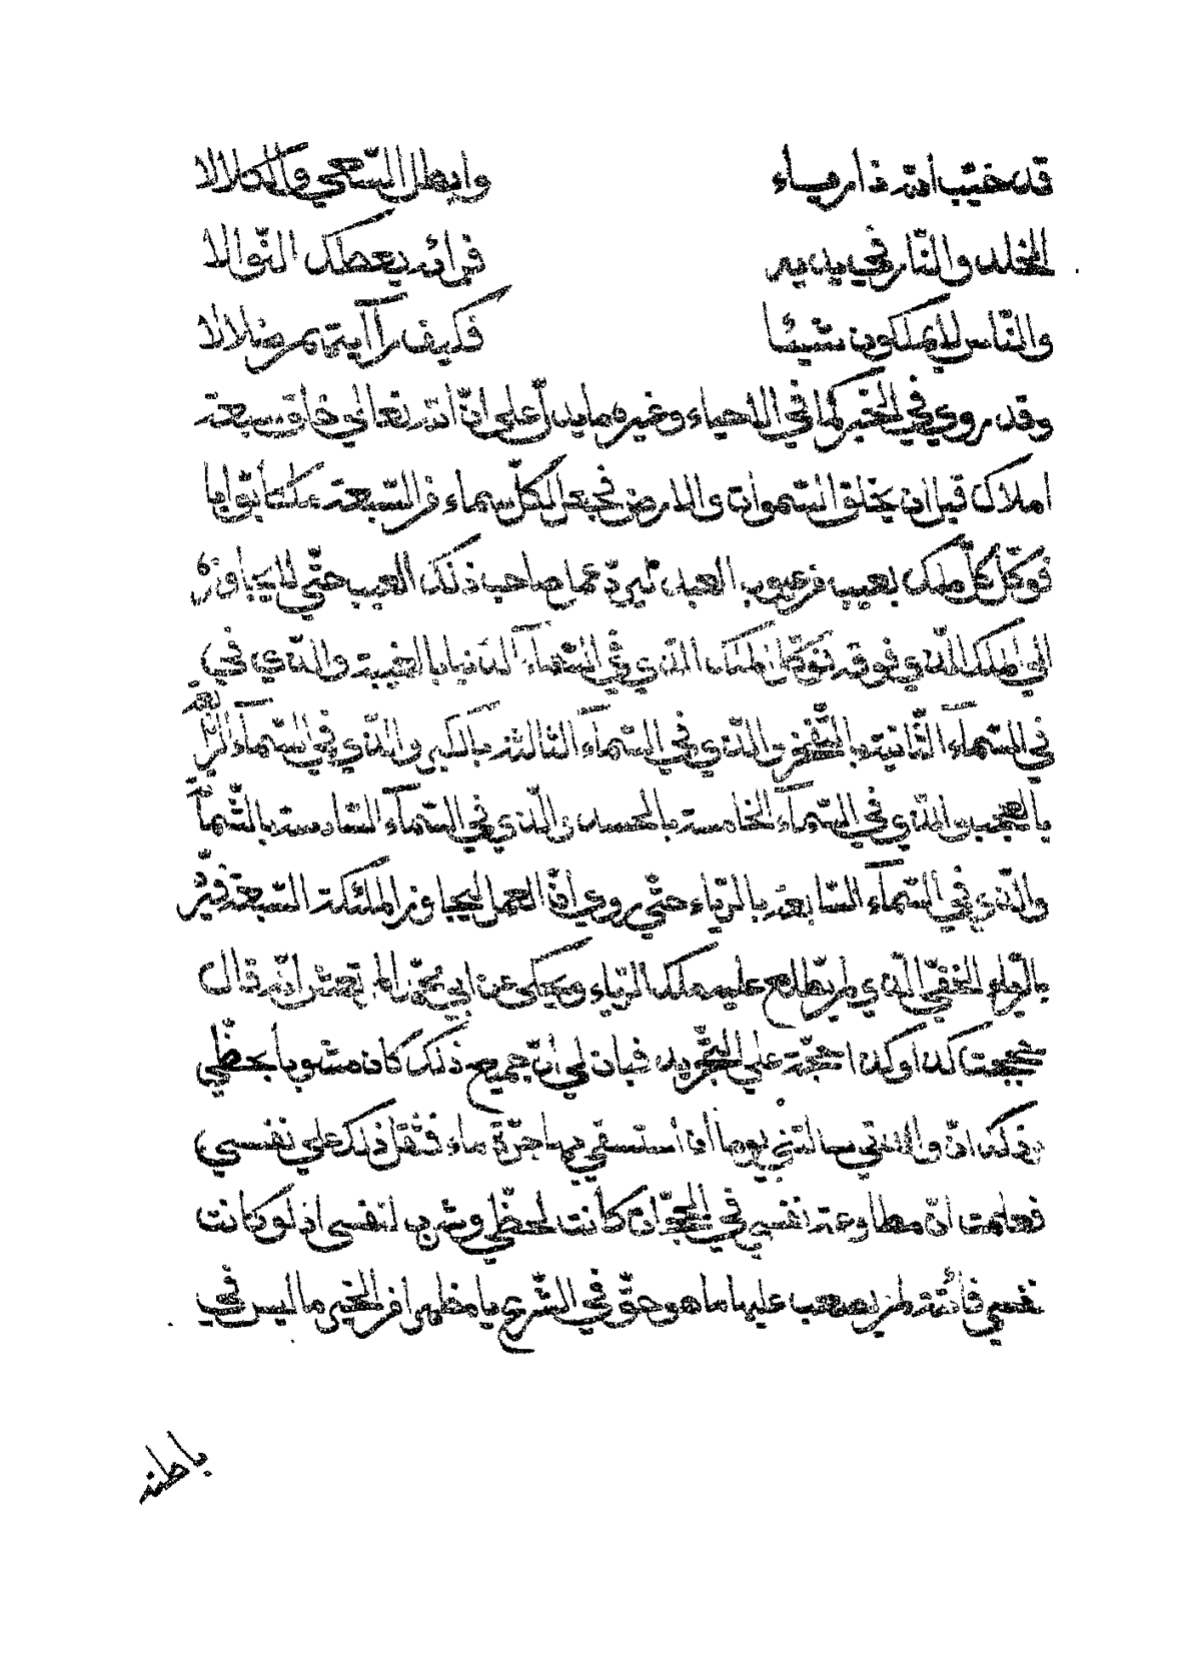 قد خيّب الله ذا رياء وابطل السّعي والكلالا
الخلد والنّار في يديه فرائه يعطك النّوالا
والنّاس لا يملكون شيئا فكيف رآأيتهم ضلالا
وقد روي في الخبر كما في الاحياء وغيره ما يدلّ على انّ الله تعالى خلق سبعة
املاك قبل ان يخلق السّموات والارض فجعل لكلّ سماء من السّبعة ملكا بوّابا
فوكّل كلّ ملك بعيب من عيوب العبد ليردّ عمل صاحب ذلك العيب حتّى لا يجاوزه
الى الملك الّذي فوقه فوكّل الملك الذي في السّمآء الدّنيا بالغيبة والذي في
في السّمآء الثّانية بالفخر والذي في السّمآء الثالثة بالكبر والذي في السّمآء الرّابعة
بالعجب والذي في السّمآء الخامسة بالحسد والّذي في السّمآء السّادسة بالشّماتة
والّذي في السّمآء السّابعة بالرّياء حتّى روي انّ العمل ليجاوز الملئكة السّبعة فيردّ
بالرّياء الخفيّ الّذي لم يطّلع عليه ملك الرّياء ويحكى عن ابي محمّد المرتعش انّه قال
حججت كذا وكذا حجّة على التّجريد فبان لي انّ جميع ذلك كان مشوبا بحظّي
وذلك انّ والدتي سالتني يوما ان استسقي لها جرّة ماء فثقل ذلك على نفسي
فعلمت انّ مطاوعة نفسي في الحجّات كانت لحظّ وشرب لنفسي اذ لو كانت
نفسي فانية لم يصعب عليها ما هو حقّ في الشّرع يا مظهرا من الخير ما ليس في
باطنه